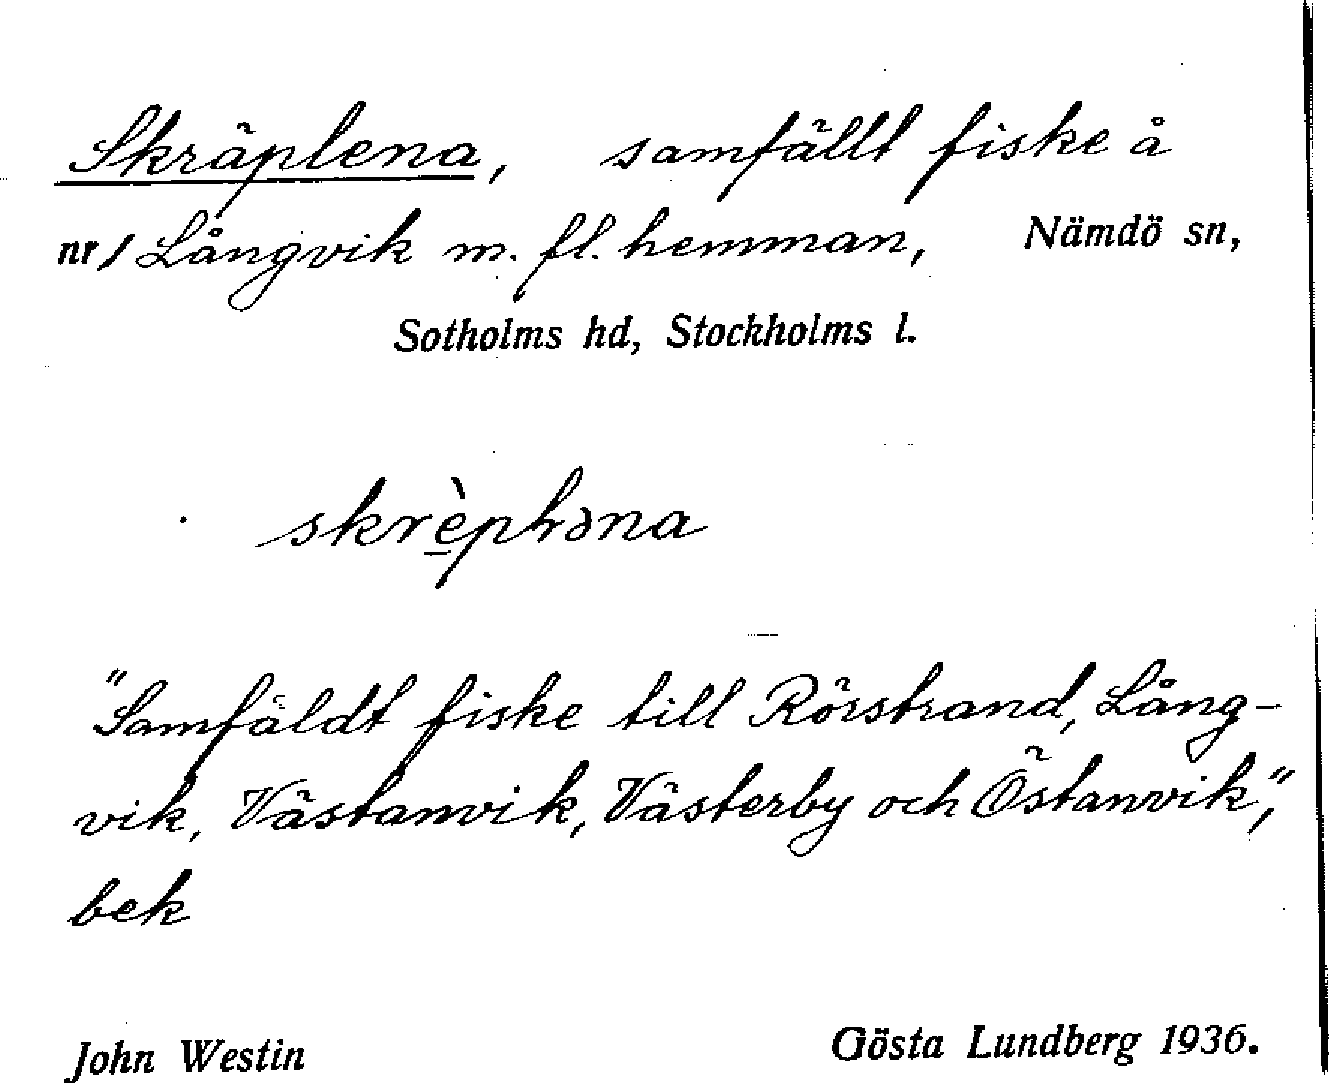 Skräplena, samfällt fiske å
nr 1 Långvik m. fl. hemman, Nämdö sn,
Sotholms hd, Stockholms l.
"Samfäldt fiske till Rörstrand, Lång-
vik, Västanvik, Västerby och Östanvik",
bek
John Westin Gösta Lundberg 1936.